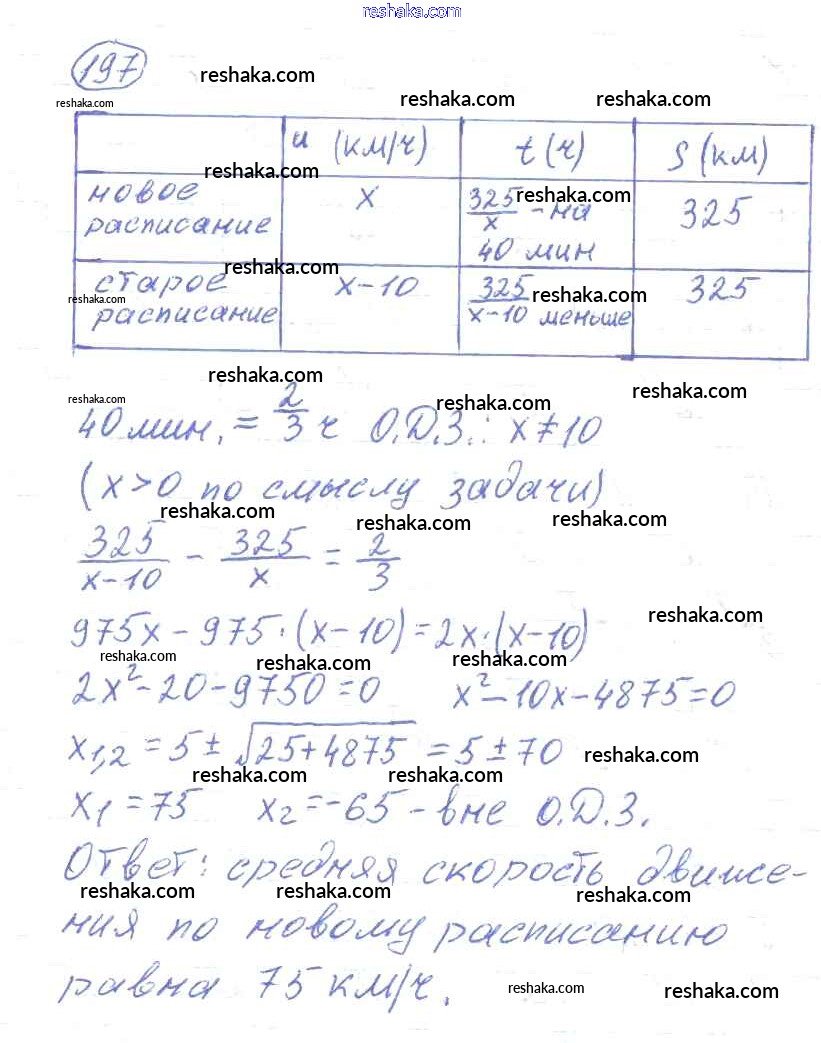 reshaka.com
197
reshaka.com
reshaka.com
reshaka.com reshaka.com
u (км/ч) t (ч) S (км)
reshaka.com
новое расписание x 325/x - на 40 мин 325
reshaka.com
reshaka.com
старое расписание x-10 325/x-10 меньше 325
reshaka.com
reshaka.com
reshaka.com
reshaka.com
reshaka.com
reshaka.com
40 мин. = 2/3 ч О.Д.З.: x≠10
(x>0 по смыслу задачи)
reshaka.com
reshaka.com
reshaka.com
325/x-10 - 325/x = 2/3
reshaka.com
975x - 975·(x-10) = 2x·(x-10)
reshaka.com
reshaka.com
reshaka.com
2x²-20-9750=0 x²-10x-4875=0
x1,2 = 5 ± √25+4875 = 5 ± 70
reshaka.com
reshaka.com
reshaka.com
x1 = 75 x2 = -65 - вне О.Д.З.
Ответ: средняя скорость движе-
reshaka.com
reshaka.com
reshaka.com
ния по новому расписанию
равна 75 км/ч.
reshaka.com
reshaka.com